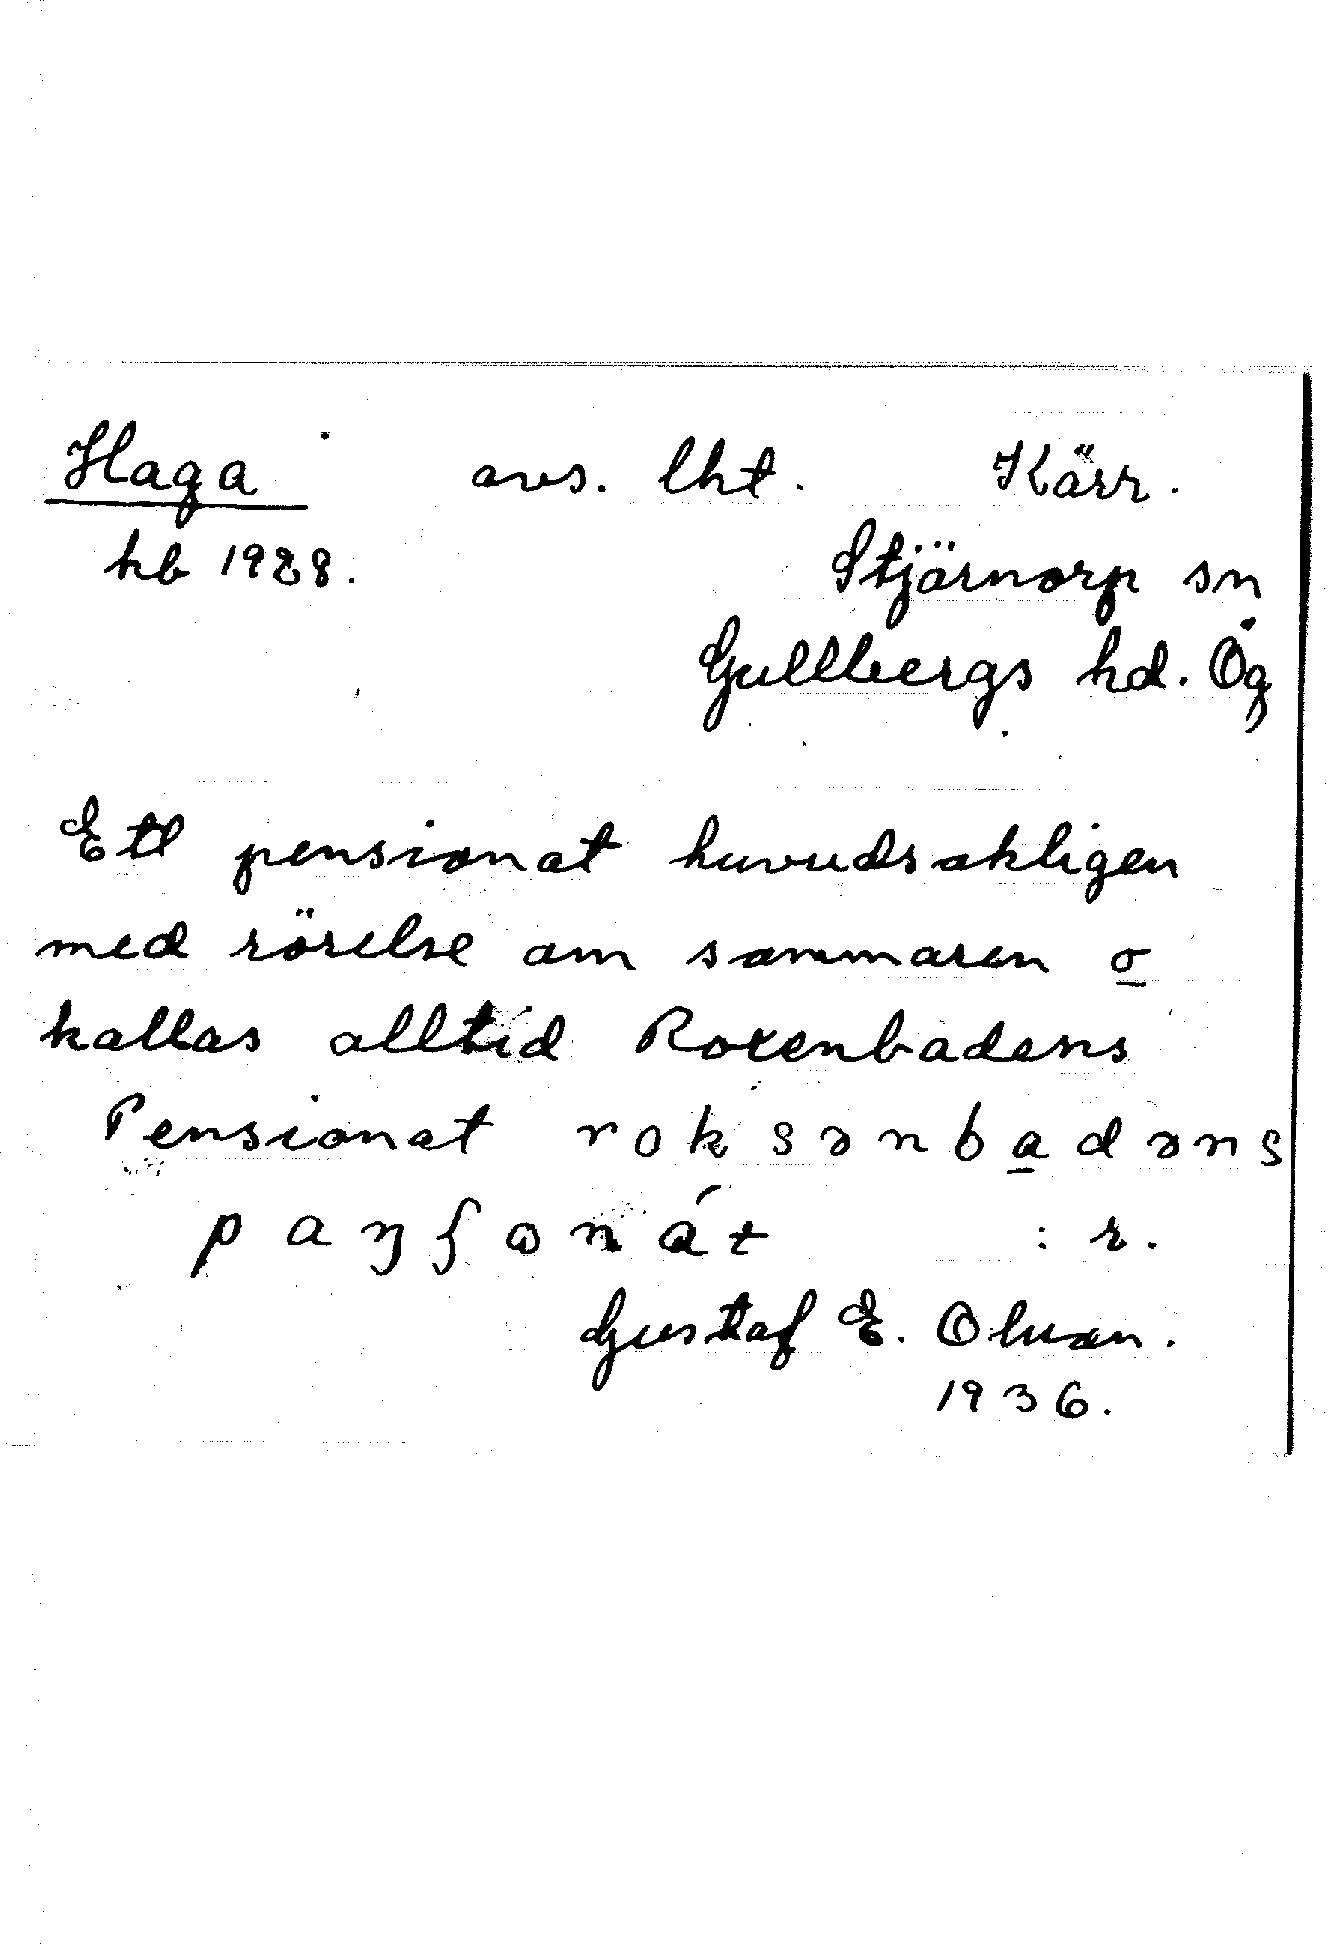 Haga avs. lht. Kärr.
kb 1928. Stjärnorp sn
Gullbergs hd. Ög
Ett pensionat huvudsakligen
med rörelse om sommaren o
kallas alltid Roxenbadens
Pensionat roksənbadəns
paŋʃɷnát : r.
Gustaf E. Olsson.
1936.